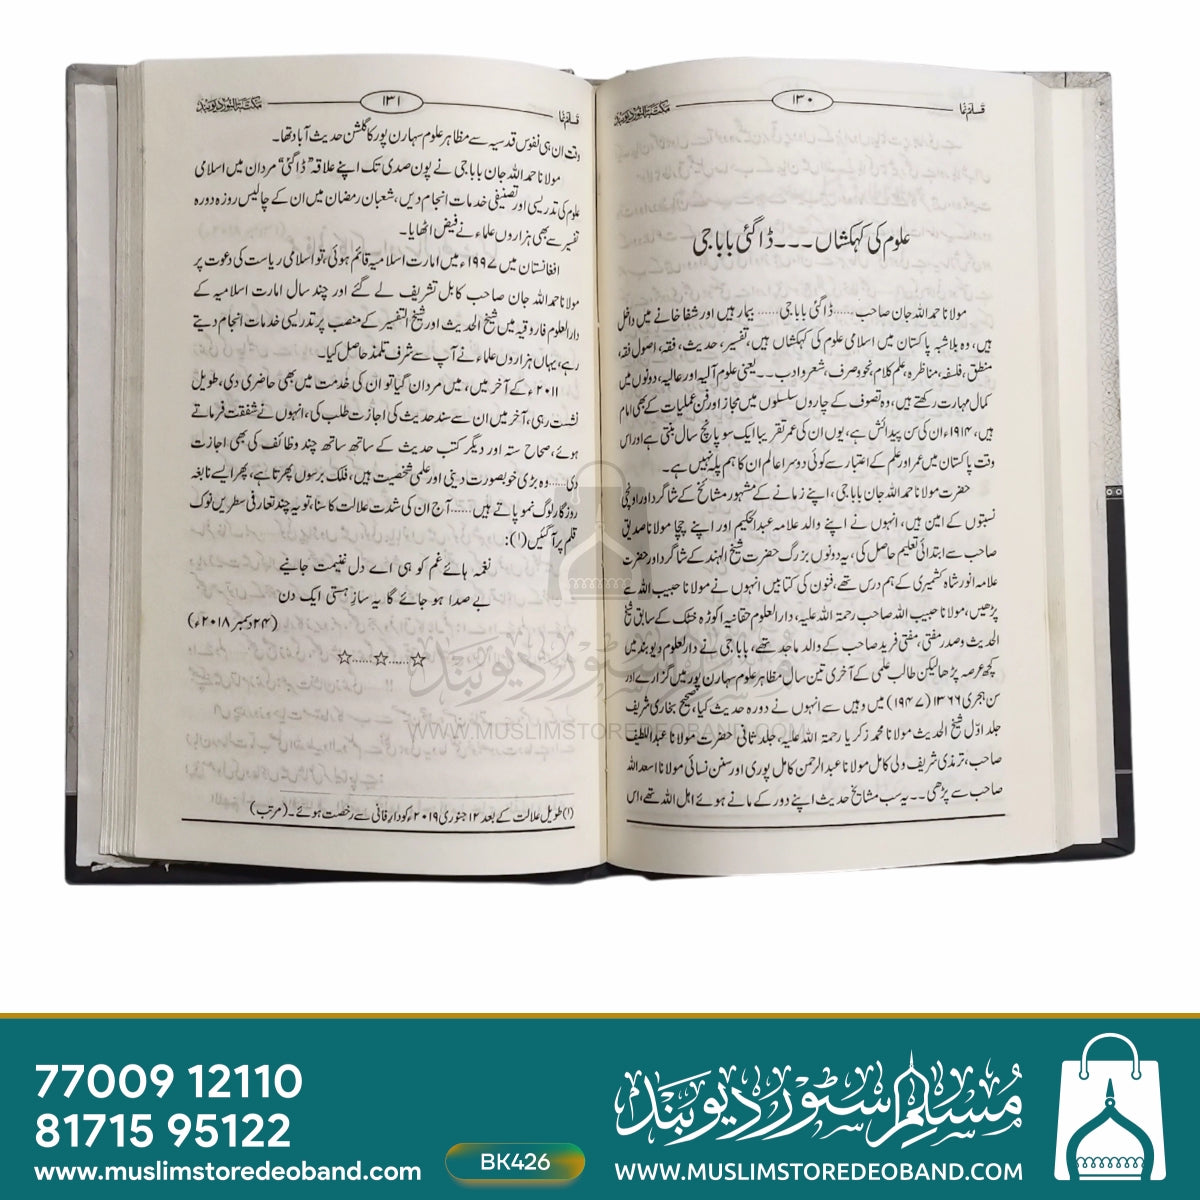 قلم نما ۱۳۰ مکتبۃ النور دیوبند
علوم کی کہکشاں۔۔۔ڈاگئی باباجی
مولانا حمد اللہ جان صاحب……ڈاگئی باباجی……بیمار ہیں اور شفا خانے میں داخل
ہیں، وہ بلاشبہ پاکستان میں اسلامی علوم کی کہکشاں ہیں، تفسیر، حدیث، فقہ، اصول فقہ،
منطق، فلسفہ، مناظرہ، علم کلام، نحو و صرف، شعر و ادب۔۔یعنی علوم آلیہ اور عالیہ، دونوں میں
کمال مہارت رکھتے ہیں، وہ تصوف کے چاروں سلسلوں میں مجاز اور فن عملیات کے بھی امام
ہیں، ۱۹۱۴ء ان کی سن پیدائش ہے، یوں ان کی عمر تقریبا ایک سو پانچ سال بنتی ہے اور اس
وقت پاکستان میں عمر اور علم کے اعتبار سے کوئی دوسرا عالم ان کا ہم پلہ نہیں ہے۔
حضرت مولانا حمد اللہ جان باباجی، اپنے زمانے کے مشہور مشائخ کے شاگرد اور اونچی
نسبتوں کے امین ہیں، انہوں نے اپنے والد علامہ عبدالحکیم اور اپنے چچا مولانا صدیق
صاحب سے ابتدائی تعلیم حاصل کی، یہ دونوں بزرگ حضرت شیخ الہند کے شاگرد اور حضرت
علامہ انور شاہ کشمیری کے ہم درس تھے، فنون کی کتابیں انہوں نے مولانا حبیب اللہ سے
پڑھیں، مولانا حبیب اللہ صاحب رحمۃ اللہ علیہ، دارالعلوم حقانیہ اکوڑہ خٹک کے سابق شیخ
الحدیث و صدر مفتی، مفتی فرید صاحب کے والد ماجد تھے، باباجی نے دارلعلوم دیوبند میں
کچھ عرصہ پڑھا لیکن طالب علمی کے آخری تین سال مظاہر علوم سہارن پور میں گزارے اور
سن ہجری ۱۳۶۶ (۱۹۴۷) میں وہیں سے انہوں نے دورہ حدیث کیا، صحیح بخاری شریف
جلد اوّل شیخ الحدیث مولانا محمد زکریا رحمۃ اللہ علیہ، جلد ثانی حضرت مولانا عبداللطیف
صاحب، ترمذی شریف ولی کامل مولانا عبدالرحمن کامل پوری اور سنن نسائی مولانا اسعد اللہ
صاحب سے پڑھی۔۔یہ سب مشایخ حدیث اپنے دور کے مانے ہوئے اہل اللہ تھے، اس
قلم نما ۱۳۱ مکتبۃ النور دیوبند
وقت ان ہی نفوس قدسیہ سے مظاہر علوم سہارن پور کا گلشن حدیث آباد تھا۔
مولانا حمد اللہ جان باباجی نے پون صدی تک اپنے علاقہ "ڈاگئی" مردان میں اسلامی
علوم کی تدریسی اور تصنیفی خدمات انجام دیں، شعبان رمضان میں ان کے چالیس روزہ دورہ
تفسیر سے بھی ہزاروں علماء نے فیض اٹھایا۔
افغانستان میں ۱۹۹۷ء میں امارت اسلامیہ قائم ہوئی، تو اسلامی ریاست کی دعوت پر
مولانا حمد اللہ جان صاحب کابل تشریف لے گئے اور چند سال امارت اسلامیہ کے
دارالعلوم فاروقیہ میں شیخ الحدیث اور شیخ التفسیر کے منصب پر تدریسی خدمات انجام دیتے
رہے، یہاں ہزاروں علماء نے آپ سے شرف تلمذ حاصل کیا۔
۲۰۱۱ء کے آخر میں، میں مردان گیا تو ان کی خدمت میں بھی حاضری دی، طویل
نشست رہی، آخر میں ان سے سند حدیث کی اجازت طلب کی، انہوں نے شفقت فرماتے
ہوئے، صحاح ستہ اور دیگر کتب حدیث کے ساتھ ساتھ چند وظائف کی بھی اجازت
دی……وہ بڑی خوبصورت دینی اور علمی شخصیت ہیں، فلک برسوں پھرتا ہے، پھر ایسے نابغہ
روزگار لوگ نمو پاتے ہیں……آج ان کی شدت علالت کا سنا، تو یہ چند تعارفی سطریں نوک
قلم پر آگئیں (۱):
نغمہ ہائے غم کو ہی اے دل غنیمت جانیے
بے صدا ہو جائے گا یہ سازِ ہستی ایک دن
(۲۴ دسمبر ۲۰۱۸ء)
☆……☆……☆
(۱) طویل علالت کے بعد ۱۲ جنوری ۲۰۱۹ء کو دار فانی سے رخصت ہوئے۔ (مرتب)
مسلم سٹور دیوبند
WWW.MUSLIMSTOREDEOBAND.COM
77009 12110
81715 95122
www.muslimstoredeoband.com
BK426
مسلم سٹور دیوبند
WWW.MUSLIMSTOREDEOBAND.COM